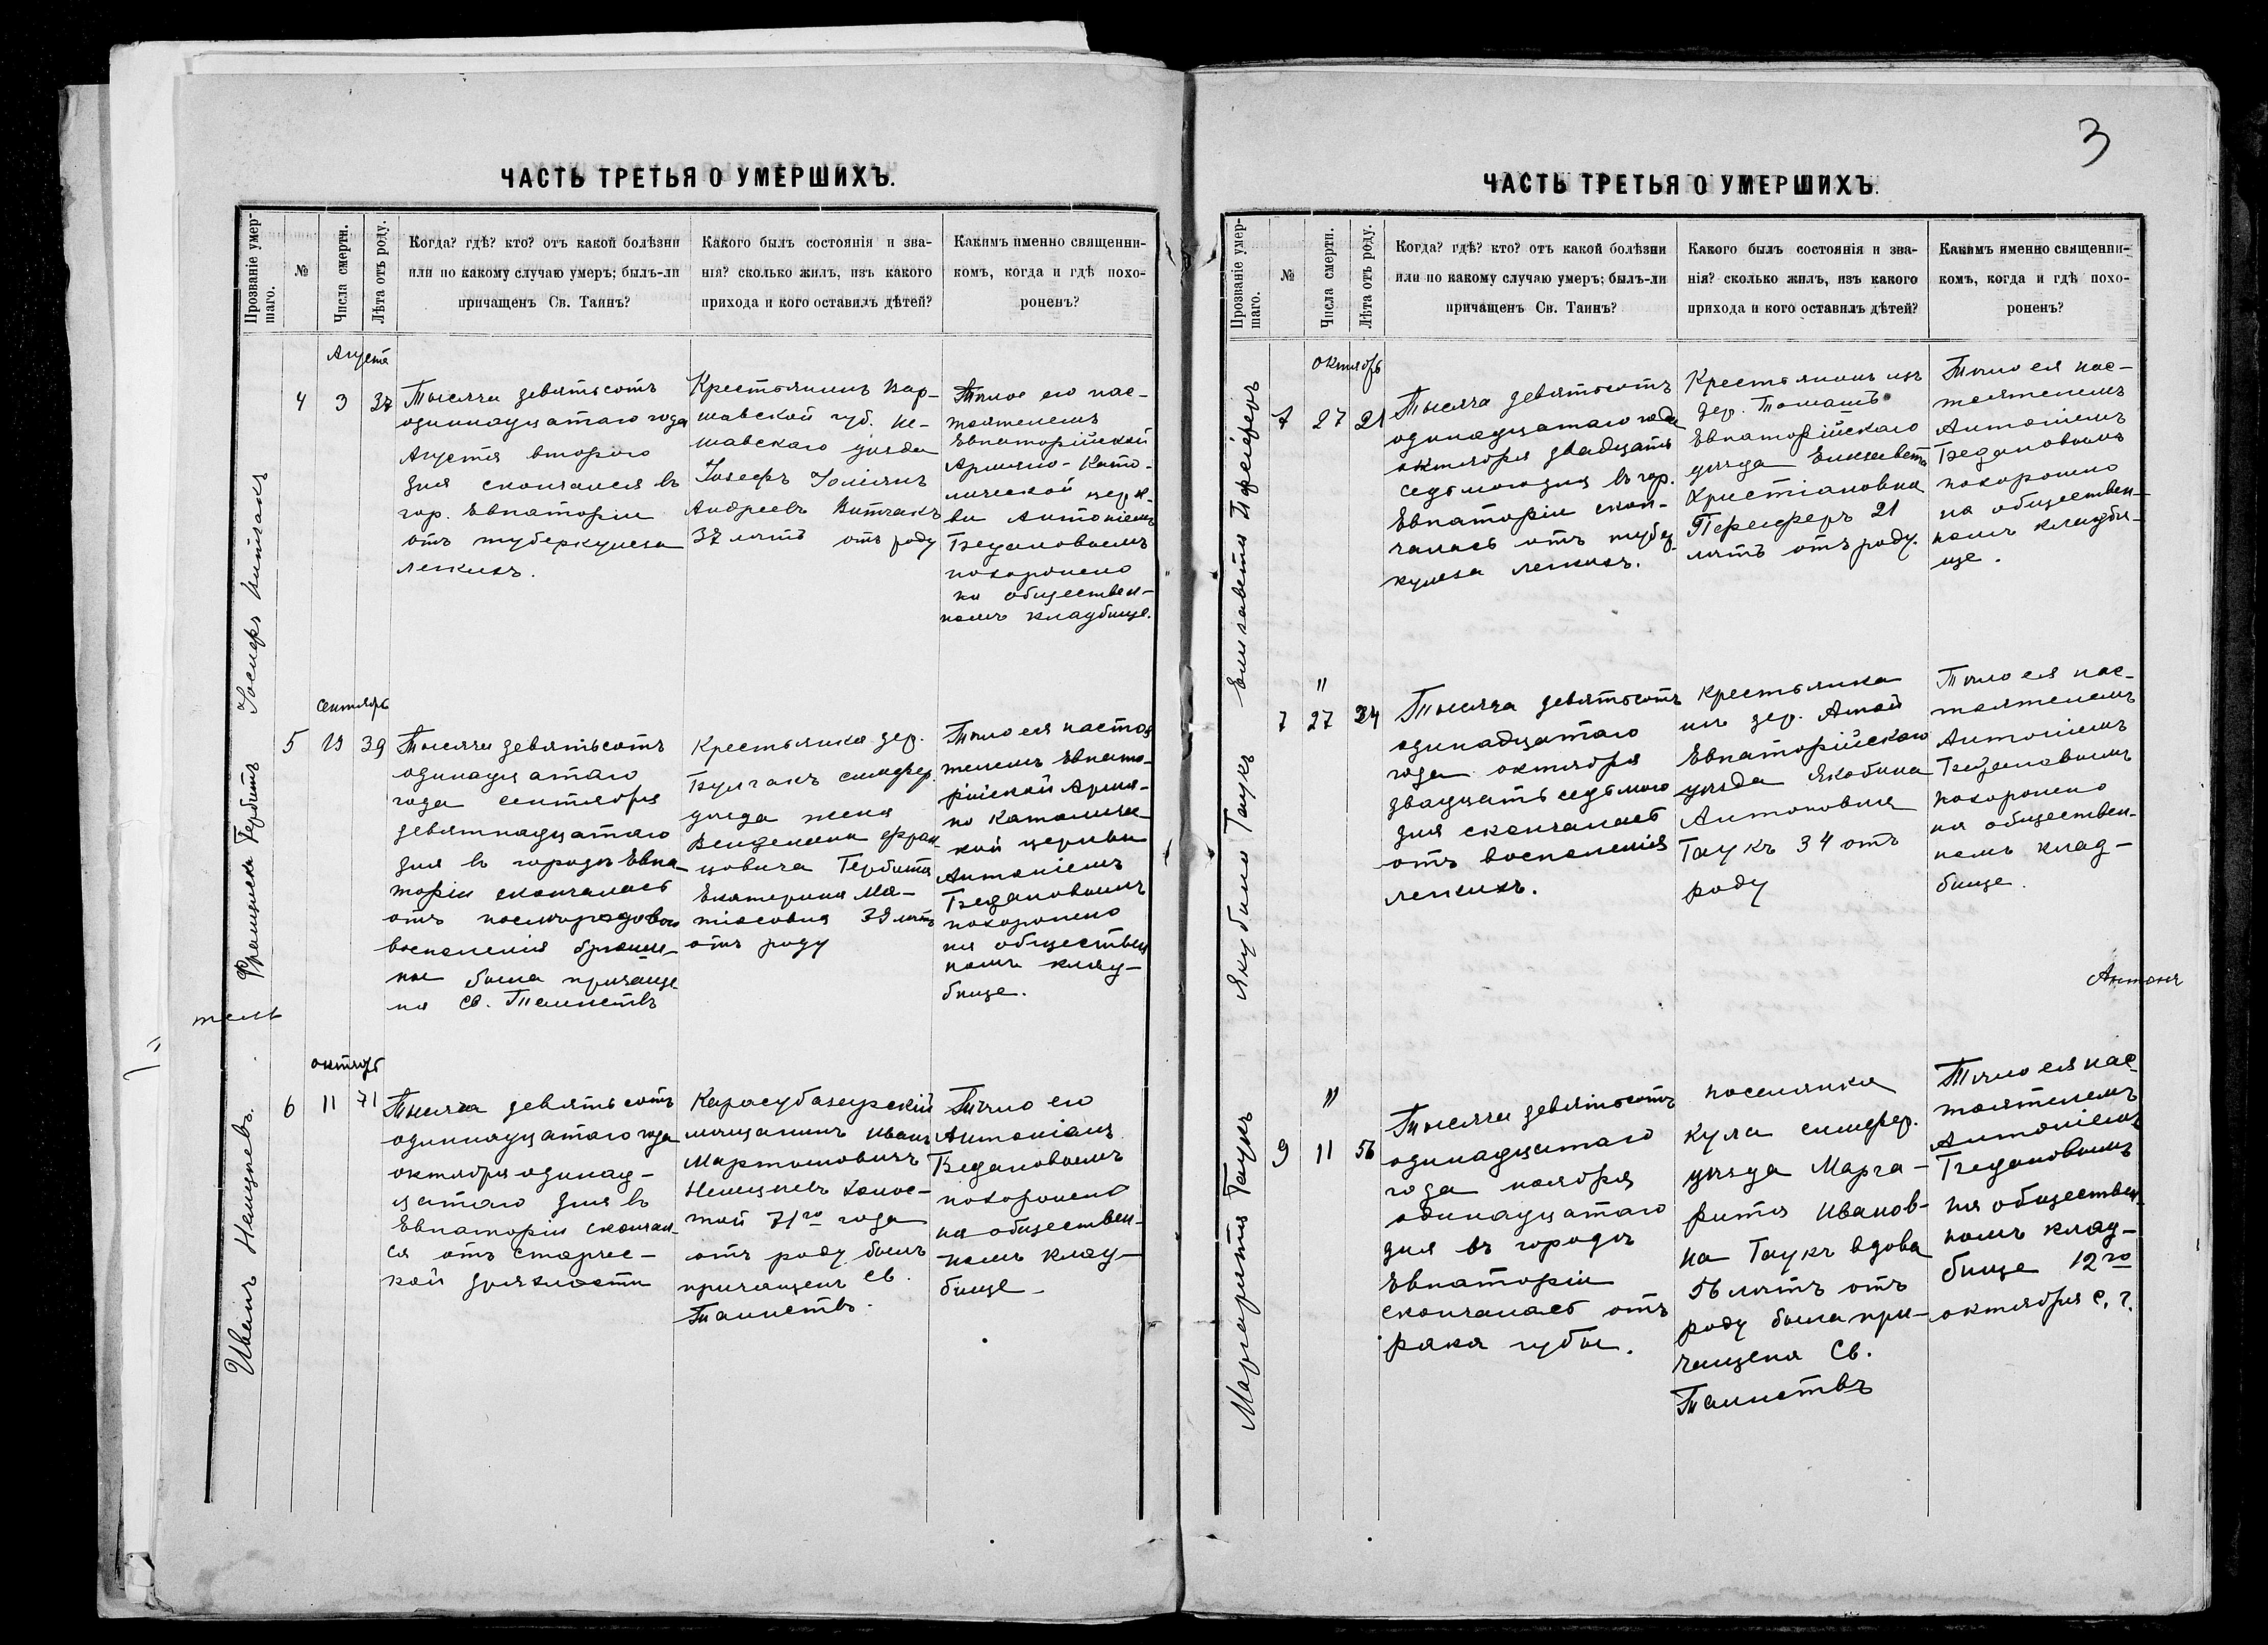 3
ЧАСТЬ ТРЕТЬЯ О УМЕРШИХЪ.
Прозваніе умер-
шаго.
№
Числа смерти.
Лѣта отъ роду.
Когда? гдѣ? кто? отъ какой болѣзни
или по какому случаю умеръ; былъ-ли
причащенъ Св. Таинъ?
Какого былъ состоянія и зва-
нія? сколько жилъ, изъ какого
прихода и кого оставилъ дѣтей?
Какимъ именно священни-
комъ, когда и гдѣ похо-
роненъ?
Іосифъ Витчакъ
Августа
4
3
37
Тысяча девятьсотъ
одиннадцатаго года
Августа второго
дня скончался въ
гор. Евпаторіи
отъ туберкулеза
легкихъ.
Крестьянинъ Вар-
шавской губ. Не-
шавскаго уѣзда
Іосифъ Юліанъ
Андреевъ Витчакъ
37 лѣтъ отъ роду
Тѣлое его нас-
тоятелемъ
Евпаторійской
Армяно-Като-
лической церк-
ви Антоніемъ
Бедановымъ
похоронено
на обществен-
номъ кладбище.
Гербитъ
Сентябрь
5
19
39
Тысяча девятьсотъ
одинадцатаго
года сентября
девятнадцатаго
дня въ городѣ Евпа-
торіи скончалась
отъ послѣродоваго
воспаленія брюши-
ны была причаще-
на Св. Таинствъ
Крестьянка дер.
Булгакъ симфер.
уѣзда жена
Венделина Фран-
цовича Гербита
Екатерина Ма-
тіасовна 39 лѣтъ
отъ роду
Тѣло ея настоя
телемъ Евпато-
рійской Армя-
но Католичес-
кой церкви
Антоніемъ
Бедановымъ
похоронено
на обществен
номъ клад-
бище.
тель
Иванъ Немцневъ.
октябрь
6
11
71
Тысяча девятьсотъ
одиннадцатаго года
октября одинад-
цатаго дня въ
Евпаторіи скончал-
ся отъ старчес-
кой дряхлости
Карасубазарскій
мѣщанинъ Иванъ
Мартыновичъ
Немцневъ холос-
той 71го года
отъ роду былъ
причащенъ Св.
Таинствъ.
Тѣло его
Антоніемъ
Бедановымъ
похоронено
на обществен-
номъ клад-
бище.
ЧАСТЬ ТРЕТЬЯ О УМЕРШИХЪ.
Прозваніе умер-
шаго.
№
Числа смерти.
Лѣта отъ роду.
Когда? гдѣ? кто? отъ какой болѣзни
или по какому случаю умеръ; былъ-ли
причащенъ Св. Таинъ?
Какого былъ состоянія и зва-
нія? сколько жилъ, изъ какого
прихода и кого оставилъ дѣтей?
Какимъ именно священни-
комъ, когда и гдѣ похо-
роненъ?
Елизавета Перейферъ
октябрь
7
27
21
Тысяча девятьсотъ
одинадцатаго года
октября двадцать
седьмого дня въ гор.
Евпаторіи скон-
чалась отъ тубер
кулеза легкихъ.
Крестьянинъ изъ
дер. Томашъ
Евпаторійскаго
уѣзда Елизавета
Христіановна
Перейферъ 21
лѣтъ отъ роду.
Тѣло ея нас-
тоятелемъ
Антоніемъ
Бедановымъ
похоронено
на обществен-
номъ кладби-
ще.
Якубина Таукъ
"
7
27
34
Тысяча девятьсотъ
одинадцатаго
года октября
двадцать седьмого
дня скончалась
отъ воспаленія
легкихъ.
Крестьянка
изъ дер. Атай
Евпаторійскаго
уѣзда Якобина
Антоновна
Таукъ 34 отъ
роду
Тѣло ея нас-
тоятелемъ
Антоніемъ
Бедановымъ
похоронено
на обществен-
номъ клад-
бище.
Антонъ
Маргарита Таукъ
"
9
11
56
Тысяча девятьсотъ
одинадцатаго
года ноября
одинадцатаго
дня въ городѣ
Евпаторіи
скончалась отъ
рака губы.
поселянка
Кула симфер.
уѣзда Марга-
рита Иванов-
на Таукъ вдова
56 лѣтъ отъ
роду была при-
чащена Св.
Таинствъ
Тѣло ея нас-
тоятелемъ
Антоніемъ
Бедановымъ
на обществен-
номъ клад-
бище 12го
октября с. г.